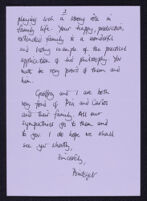 3
playing such a strong role in
family life. Your happy, productive,
extended family is a wonderful
and living example of the practical
application of his philosophy. You
must be very proud of them and
him.
Geoffrey and I are both
very fond of Pen and Carlos
and their family. All our
sympathies go to them and
to you. I do hope we shall
see you shortly,
Sincerely,